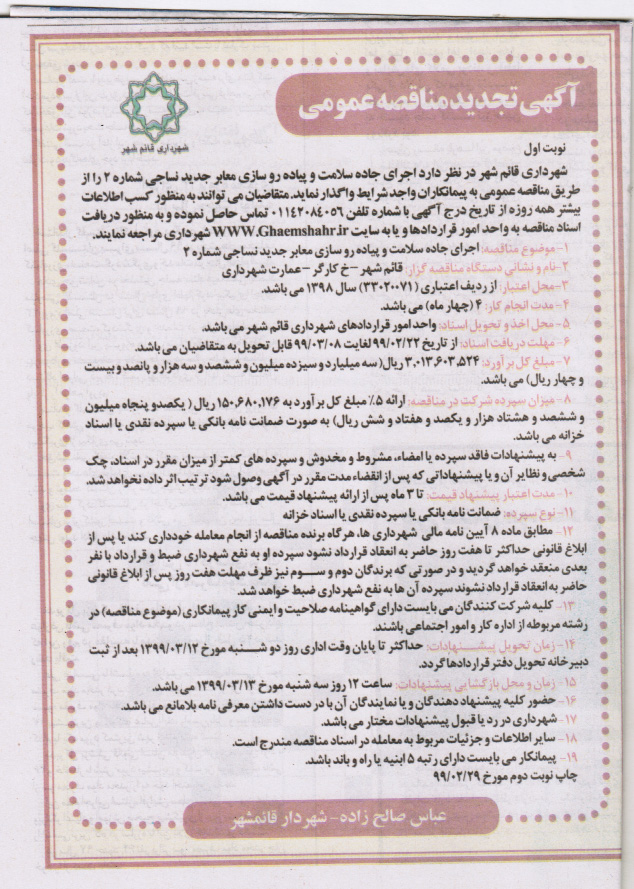 آگهی تجدید مناقصه عمومی
شهرداری قائم شهر
نوبت اول
شهرداری قائم شهر در نظر دارد اجرای جاده سلامت و پیاده رو سازی معابر جدید نساجی شماره ۲ را از
طریق مناقصه عمومی به پیمانکاران واجد شرایط واگذار نماید. متقاضیان می توانند به منظور کسب اطلاعات
بیشتر همه روزه از تاریخ درج آگهی با شماره تلفن ۰۱۱۴۲۰۸۴۰۵۶ تماس حاصل نموده و به منظور دریافت
اسناد مناقصه به واحد امور قراردادها و یا به سایت WWW.Ghaemshahr.ir شهرداری مراجعه نمایند.
۱- موضوع مناقصه: اجرای جاده سلامت و پیاده رو سازی معابر جدید نساجی شماره ۲
۲- نام و نشانی دستگاه مناقصه گزار: قائم شهر - خ کارگر - عمارت شهرداری
۳- محل اعتبار: از ردیف اعتباری (۳۳۰۲۰۰۷۱) سال ۱۳۹۸ می باشد.
۴- مدت انجام کار: ۴ (چهار ماه) می باشد.
۵- محل اخذ و تحویل اسناد: واحد امور قراردادهای شهرداری قائم شهر می باشد.
۶- مهلت دریافت اسناد: از تاریخ ۹۹/۰۲/۲۲ لغایت ۹۹/۰۳/۰۸ قابل تحویل به متقاضیان می باشد.
۷- مبلغ کل برآورد: ۳,۰۱۳,۶۰۳,۵۲۴ ریال( سه میلیارد و سیزده میلیون و ششصد و سه هزار و پانصد و بیست
و چهار ریال) می باشد.
۸- میزان سپرده شرکت در مناقصه: ارائه ۵٪ مبلغ کل برآورد به ۱۵۰,۶۸۰,۱۷۶ ریال ( یکصد و پنجاه میلیون
و ششصد و هشتاد هزار و یکصد و هفتاد و شش ریال) به صورت ضمانت نامه بانکی یا سپرده نقدی یا اسناد
خزانه می باشد.
۹- به پیشنهادات فاقد سپرده یا امضاء، مشروط و مخدوش و سپرده های کمتر از میزان مقرر در اسناد، چک
شخصی و نظایر آن و یا پیشنهاداتی که پس از انقضاء مدت مقرر در آگهی وصول شود ترتیب اثر داده نخواهد شد.
۱۰- مدت اعتبار پیشنهاد قیمت: تا ۳ ماه پس از ارائه پیشنهاد قیمت می باشد.
۱۱- نوع سپرده: ضمانت نامه بانکی یا سپرده نقدی یا اسناد خزانه
۱۲- مطابق ماده ۸ آیین نامه مالی شهرداری ها، هرگاه برنده مناقصه از انجام معامله خودداری کند یا پس از
ابلاغ قانونی حداکثر تا هفت روز حاضر به انعقاد قرارداد نشود سپرده او به نفع شهرداری ضبط و قرارداد با نفر
بعدی منعقد خواهد گردید و در صورتی که برندگان دوم و سوم نیز ظرف مهلت هفت روز پس از ابلاغ قانونی
حاضر به انعقاد قرارداد نشوند سپرده آن ها به نفع شهرداری ضبط خواهد شد.
۱۳- کلیه شرکت کنندگان می بایست دارای گواهینامه صلاحیت و ایمنی کار پیمانکاری (موضوع مناقصه) در
رشته مربوطه از اداره کار و امور اجتماعی باشند.
۱۴- زمان تحویل پیشنهادات: حداکثر تا پایان وقت اداری روز دو شنبه مورخ ۱۳۹۹/۰۳/۱۲ بعد از ثبت
دبیرخانه تحویل دفتر قراردادها گردد.
۱۵- زمان و محل بازگشایی پیشنهادات: ساعت ۱۲ روز سه شنبه مورخ ۱۳۹۹/۰۳/۱۳ می باشد.
۱۶- حضور کلیه پیشنهاد دهندگان و یا نمایندگان آن با در دست داشتن معرفی نامه بلامانع می باشد.
۱۷- شهرداری در رد یا قبول پیشنهادات مختار می باشد.
۱۸- سایر اطلاعات و جزئیات مربوط به معامله در اسناد مناقصه مندرج است.
۱۹- پیمانکار می بایست دارای رتبه ۵ ابنیه یا راه و باند باشد.
چاپ نوبت دوم مورخ ۹۹/۰۲/۲۹
عباس صالح زاده - شهردار قائمشهر